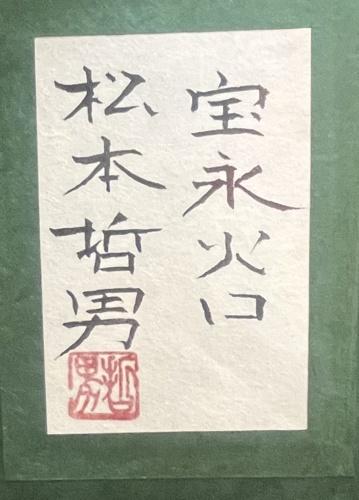 宝永火口
松本哲男
哲男